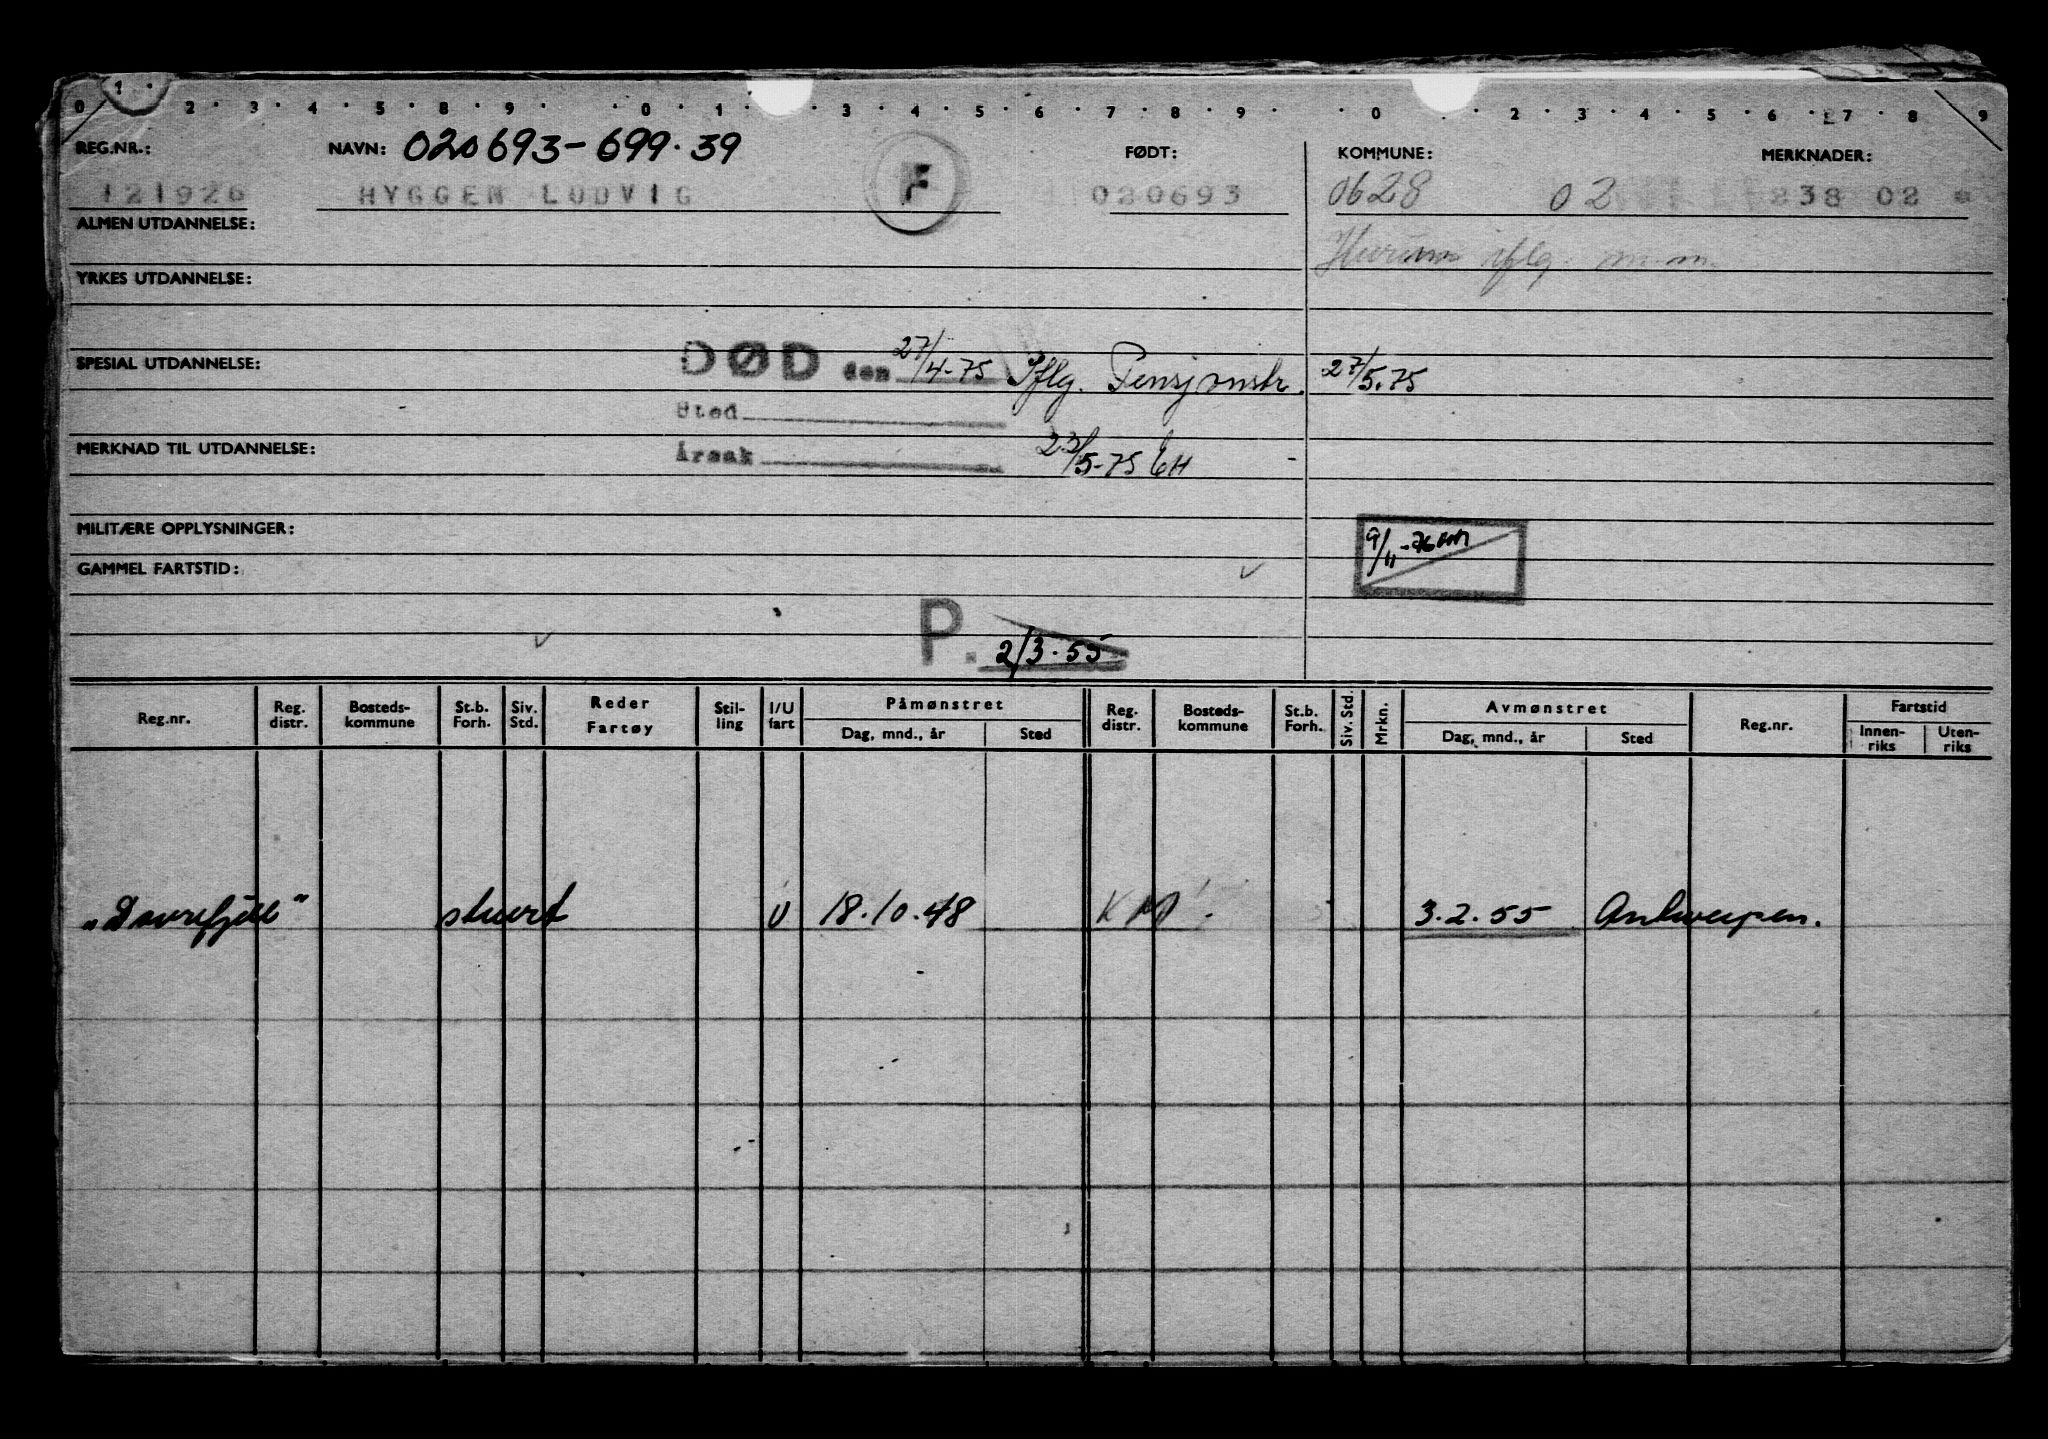 0 1 2 3 4 5 8 9 0 1 3 4 5 6 7 8 9 0 2 3 5 6 7 8 9
REG.NR.: NAVN: 020693-699.39 FØDT: KOMMUNE: MERKNADER:
121926 HYGGEN LUDVIG F 020693 0628 02 238 02
ALMEN UTDANNELSE: Hurum iflg. m.m.
YRKES UTDANNELSE:
SPESIAL UTDANNELSE: DØD den 27/4-75 Iflg. Pensjonstr. 27/5.75
Sted
MERKNAD TIL UTDANNELSE: Årsak 23/5-75 EH
MILITÆRE OPPLYSNINGER: 9/11-76
GAMMEL FARTSTID:
P. 2/3.55
Reg.nr. Reg. distr. Bosteds-kommune St.b. Forh. Siv. Std. Reder Fartøy Stil-ling I/U fart Påmønstret Dag, mnd., år Sted Reg. distr. Bosteds-kommune St.b. Forh. Siv. Std. Mrkn. Avmønstret Dag, mnd., år Sted Reg.nr. Fartstid Innen-riks Uten-riks
"Dovrefjell" stuert U 18.10.48 3.2.55 Antwerpen.